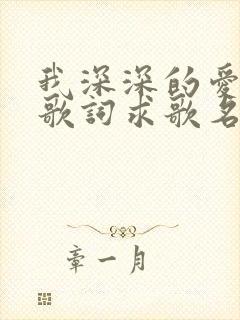 我深深的愛
歌詞求歌名
章一月